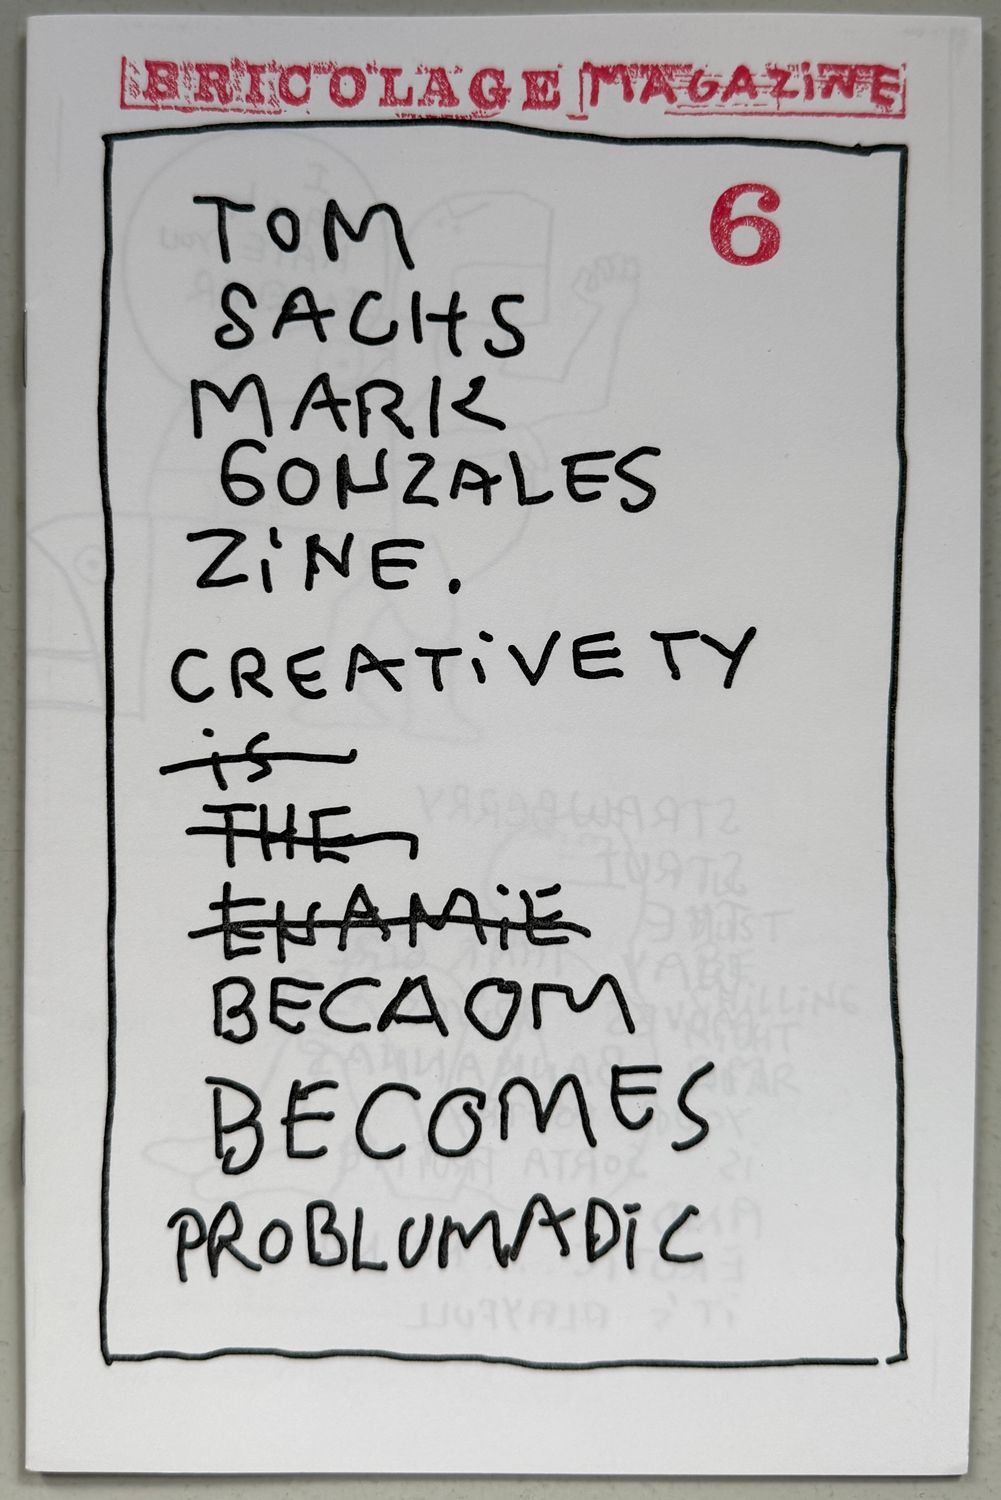 BRICOLAGE MAGAZiNE
6
TOM
SACHS
MARK
GONZALES
ZiNE.
CREATiVETY
is
THE
ENAMiE
BECAOM
BECOMES
PROBLUMADiC